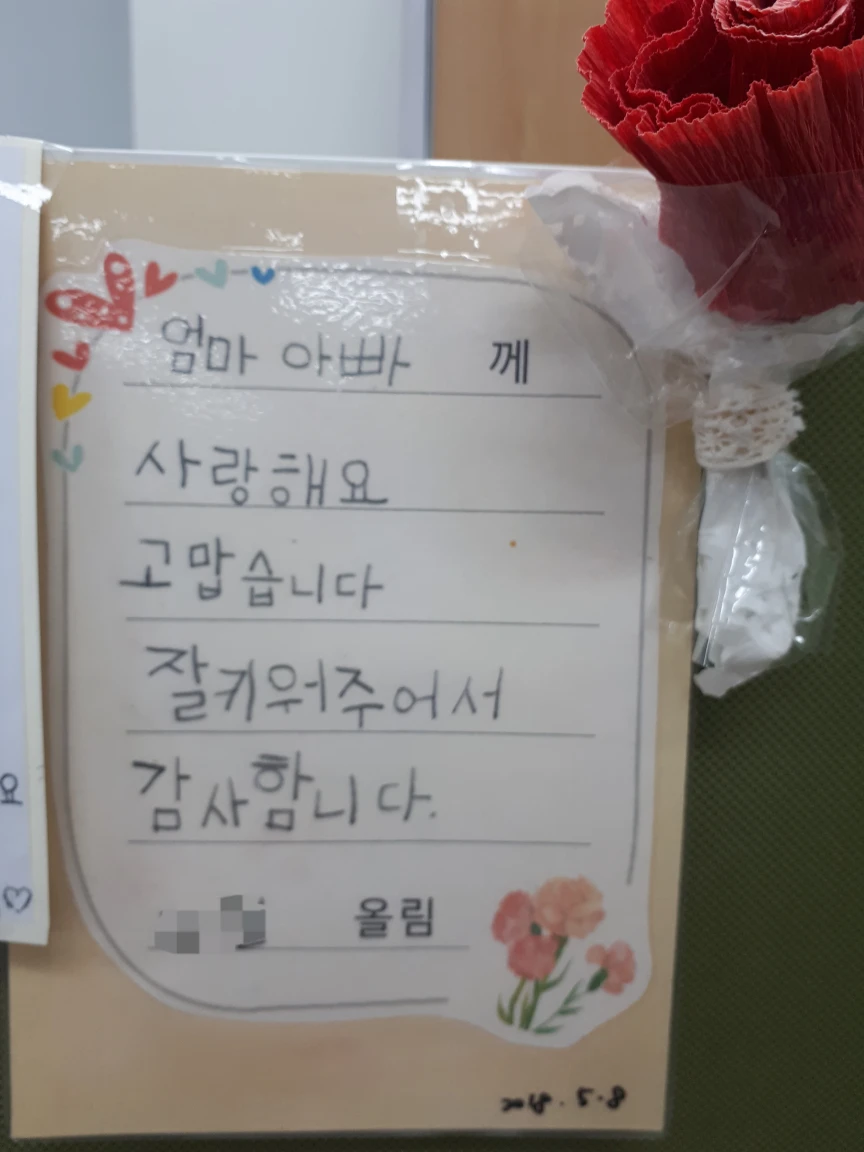 엄마 아빠 께
사랑해요
고맙습니다
잘키워주어서
감사함니다.
올림
2018.5.8
요